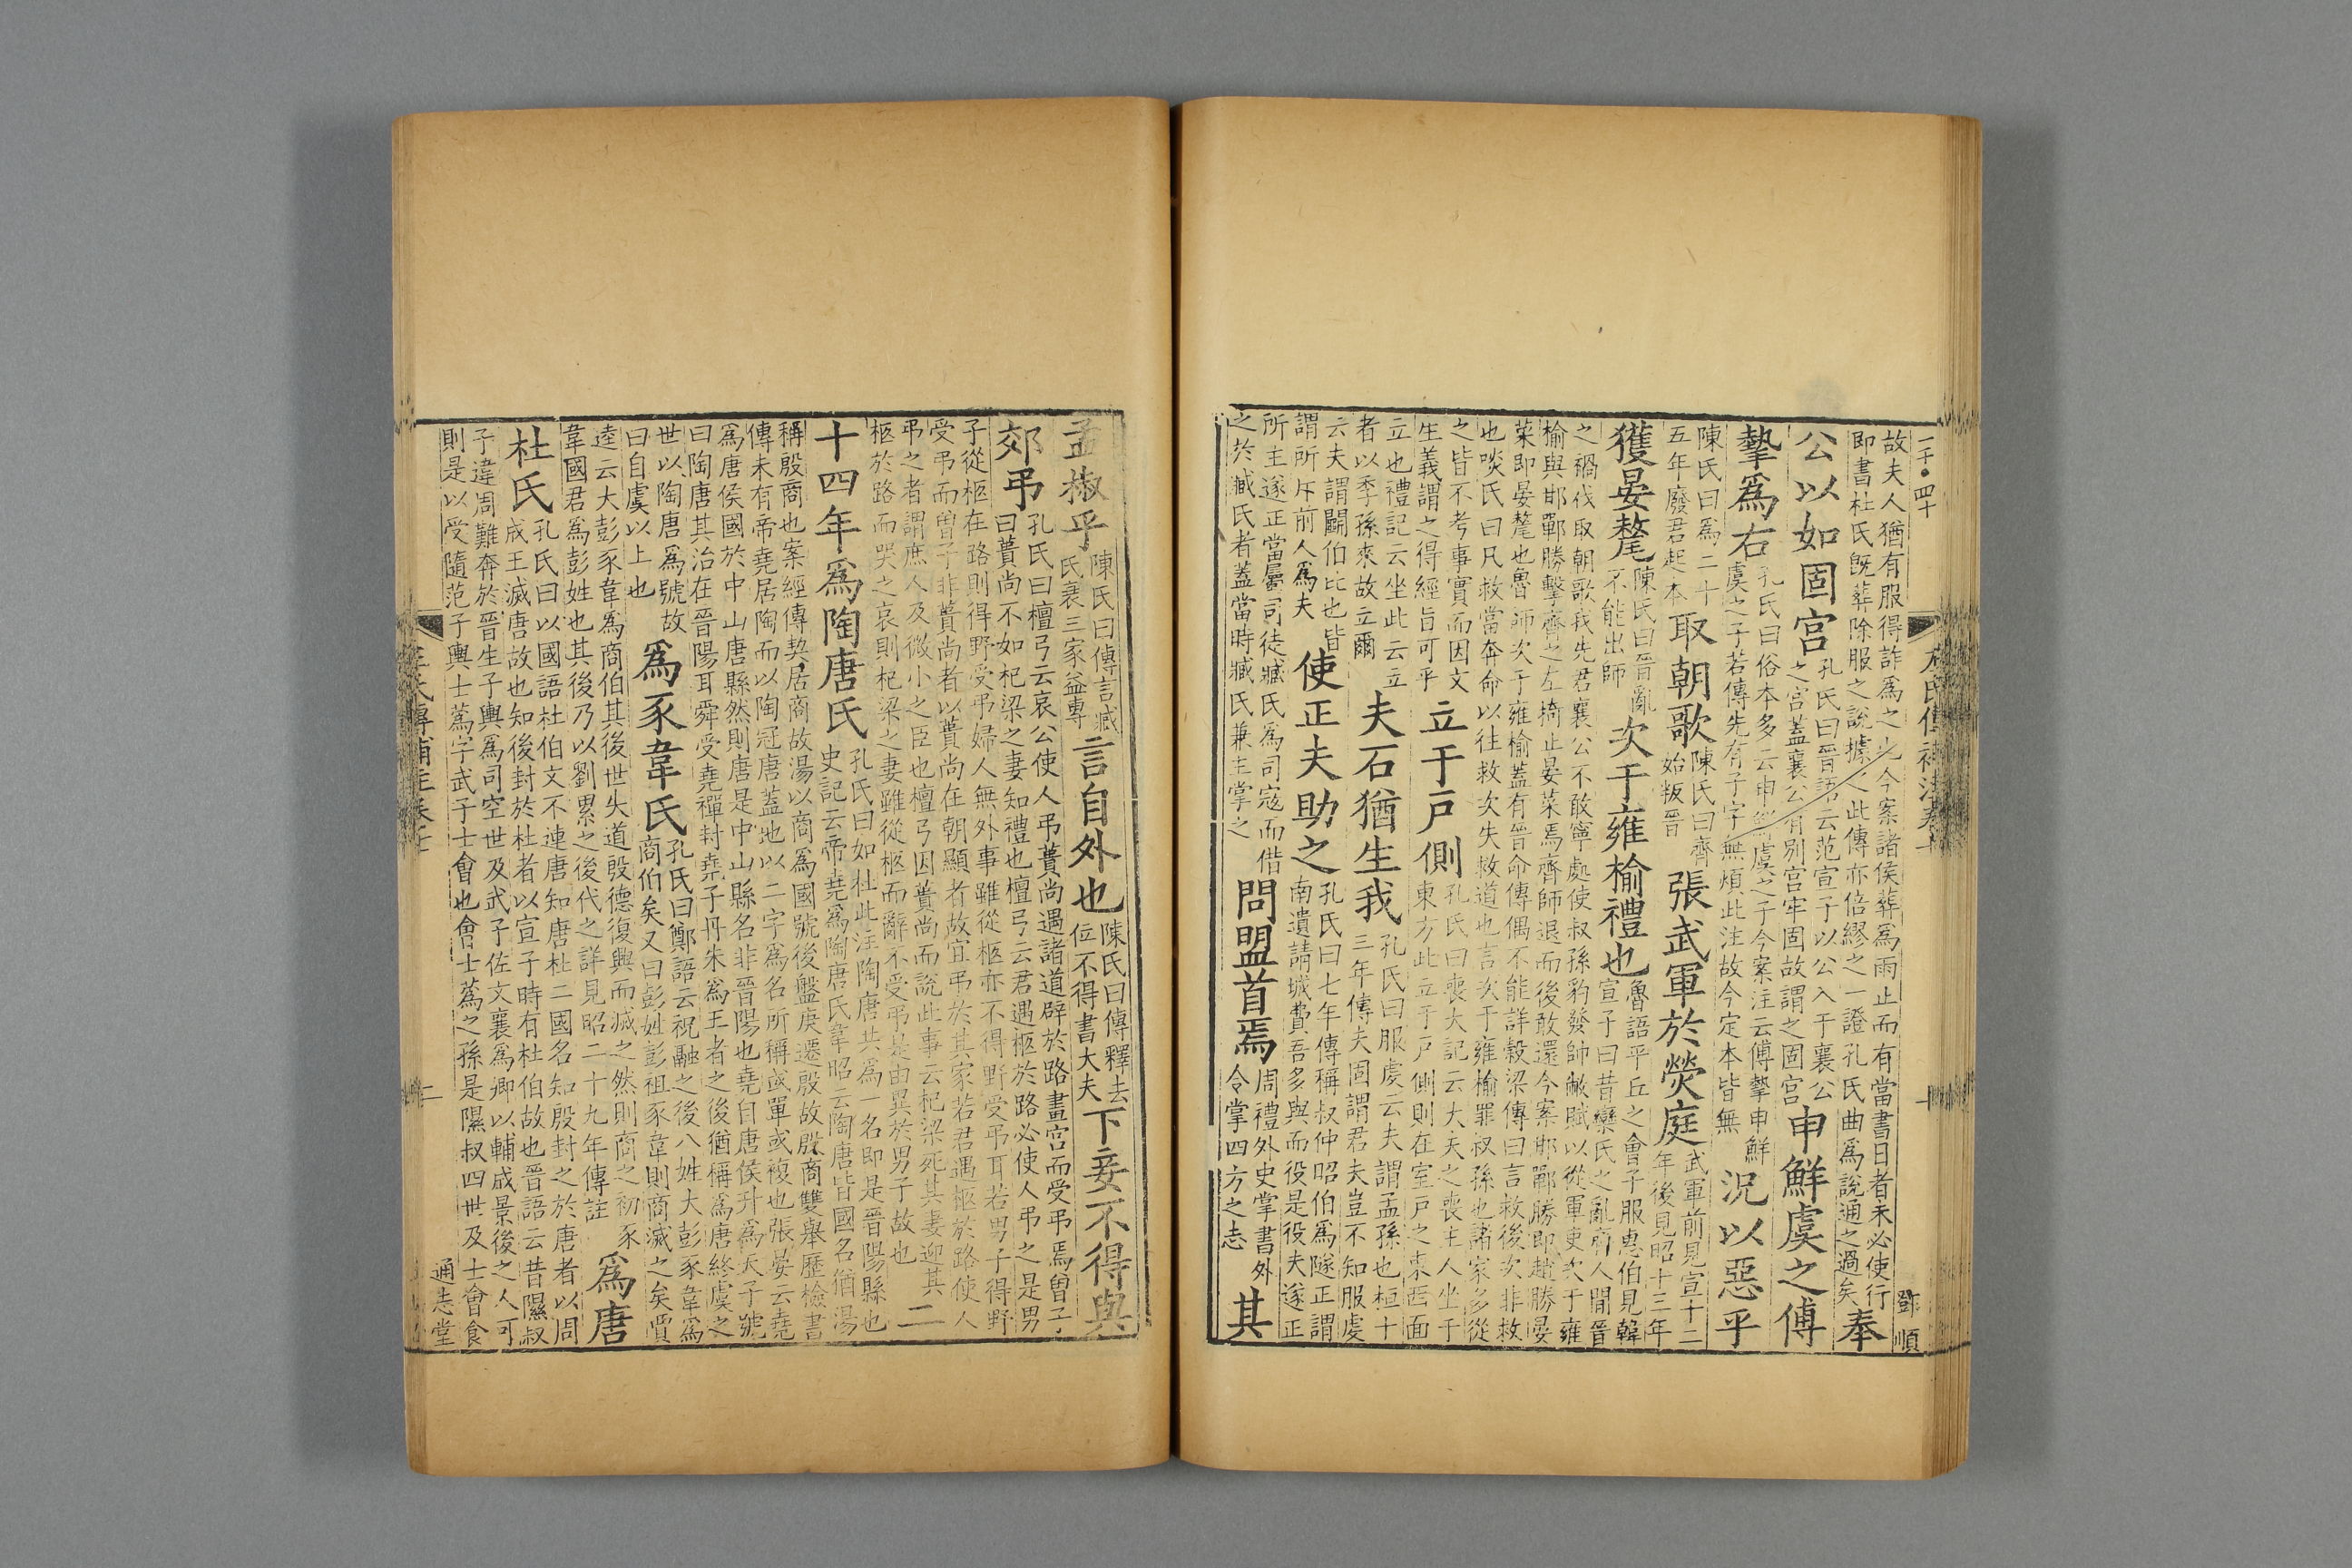 二千●四十
左氏傳補注卷
鄧順
故夫人猶有服得詐爲之也今案諸侯葬爲雨止而有當書日者未必使行
即書杜氏既葬除服之說據人此傳亦倍繆之一證孔氏曲爲說通之過矣
奉
公以如固宮
孔氏曰晉語云范宣子以公入于襄公
之宮蓋襄公有別宮牢固故謂之固宮
申鮮虞之傅
摯爲右
孔氏曰俗本多云申鮮虞之子今案注云傅摯申鮮
虞之子若傳先有子字無煩此注故今定本皆無
況以惡乎
陳氏曰爲二十
五年廢君起本
取朝歌
陳氏曰齊
始叛晉
張武軍於熒庭
武軍前見宣十二
年後見昭十三年
獲晏氂
陳氏曰晉亂
不能出師
次于雍榆禮也
魯語平丘之會子服惠伯見韓
宣子曰昔欒氏之亂齊人閒晉
之禍伐取朝歌我先君襄公不敢寧處使叔孫豹發帥敝賦以從軍吏次于雍
榆與邯鄲勝擊齊之左掎止晏萊焉齊師退而後敢還今案邯鄲勝即趙勝晏
萊即晏氂也魯師次于雍榆蓋有晉命傳偶不能詳穀梁傳曰言救後次非救
也啖氏曰凡救當奔命以往救次失救道也言次于雍榆罪叔孫也諸家多從
之皆不考事實而因文
生義謂之得經旨可乎
立于戶側
孔氏曰喪大記云大夫之喪主人坐于
東方此立于戶側則在室戶之東西面
立也禮記云坐此云立
者以季孫來故立爾
夫石猶生我
孔氏曰服虔云夫謂孟孫也桓十
三年傳夫固謂君夫豈不知服虔
云夫謂鬭伯比也皆
謂所斥前人爲夫
使正夫助之
孔氏曰七年傳稱叔仲昭伯爲隧正謂
南遺請城費吾多與而役是役夫遂正
所主遂正當屬司徒臧氏爲司寇而偕
之於臧氏者蓋當時臧氏兼主掌之
問盟首焉
周禮外史掌書外
令掌四方之志
其
孟椒乎
陳氏曰傳言臧
氏衰三家益專
言自外也
陳氏曰傳釋去
位不得書大夫
下妾不得與
郊弔
孔氏曰檀弓云哀公使人弔蕢尚遇諸道辟於路畫宮而受弔焉曾子
曰蕢尚不如杞梁之妻知禮也檀弓云君遇柩於路必使人弔之是男
子從柩在路則得野受弔婦人無外事雖從柩亦不得野受弔耳若男子得野
受弔而曾子非蕢尚者以蕢尚在朝顯者故宜弔於其家若君遇柩於路使人
弔之者謂庶人及微小之臣也檀弓因蕢尚而說此事云杞梁死其妻迎其
柩於路而哭之哀則杞梁之妻雖從柩而辭不受弔是由異於男子故也
二
十四年爲陶唐氏
孔氏曰如杜此注陶唐共爲一名即是晉陽縣也
史記云帝堯爲陶唐氏韋昭云陶唐皆國名猶湯
稱殷商也案經傳契居商故湯以商爲國號後盤庚遷殷故殷商雙舉歷檢書
傳未有帝堯居陶而以陶冠唐蓋地以二字爲名所稱或單或複也張晏云堯
爲唐侯國於中山唐縣然則唐是中山縣名非晉陽也堯自唐侯升爲天子號
曰陶唐其治在晉陽耳舜受堯禪封堯子丹朱爲王者之後猶稱爲唐終虞之
世以陶唐爲號故
曰自虞以上也
爲豕韋氏
孔氏曰鄭語云祝融之後八姓大彭豕韋爲
商伯矣又曰彭姓彭祖豕韋則商滅之矣賈
逵云大彭豕韋爲商伯其後世失道殷德復興而滅之然則商之初豕
韋國君爲彭姓也其後乃以劉累之後代之詳見昭二十九年傳註
爲唐
杜氏
孔氏曰以國語杜伯文不連唐知唐杜二國名知殷封之於唐者以周
成王滅唐故也知後封於杜者以宣子時有杜伯故也晉語云昔隰叔
子違周難奔於晉生子輿爲司空世及武子佐文襄爲卿以輔成景後之人可
則是以受隨范子輿士蒍字武子士會也會士蒍之孫是隰叔四世及士會食
左氏傳補注卷
二
通志堂